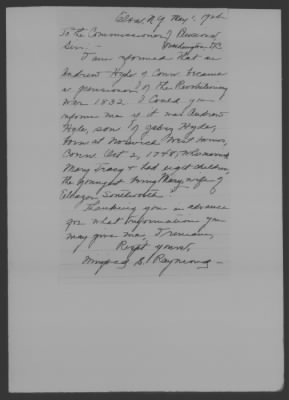 To the Commissioner of Pensions
Washington D.C.
Sir: -
I am informed that an
Andrew Hyde of Conn became
a pensioner of the Revolutionary
War 1832. Could you
inform me if it was Andrew
Hyde, son of Jabez Hyde,
born at Norwich West
Conn Oct 2, 1748, who married
Mary Tracy & had eight children,
the youngest being Mary, wife of
Southworth.
Thanking you in advance
for what information you
may give me, I remain,
Respt yours,
Raymond